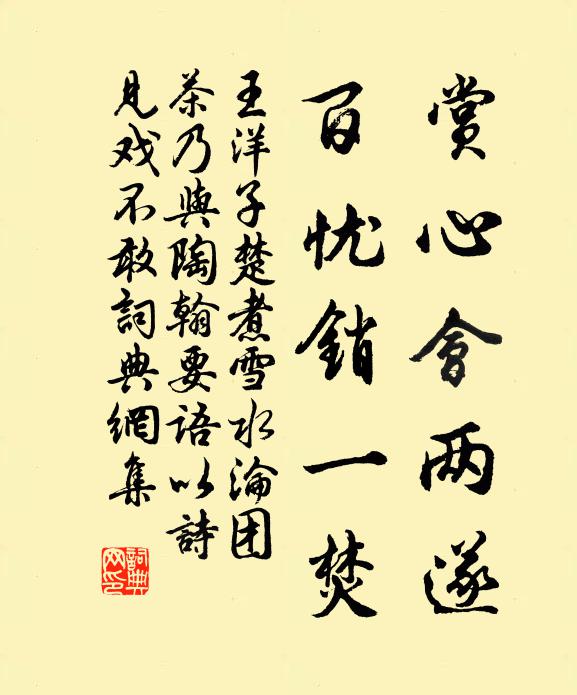 赏心會两遂
百忧銷一焚
王洋子楚煮雪水淪团
茶乃與陶翰要語以詩
見戏不敢詞典網集
詞典网印